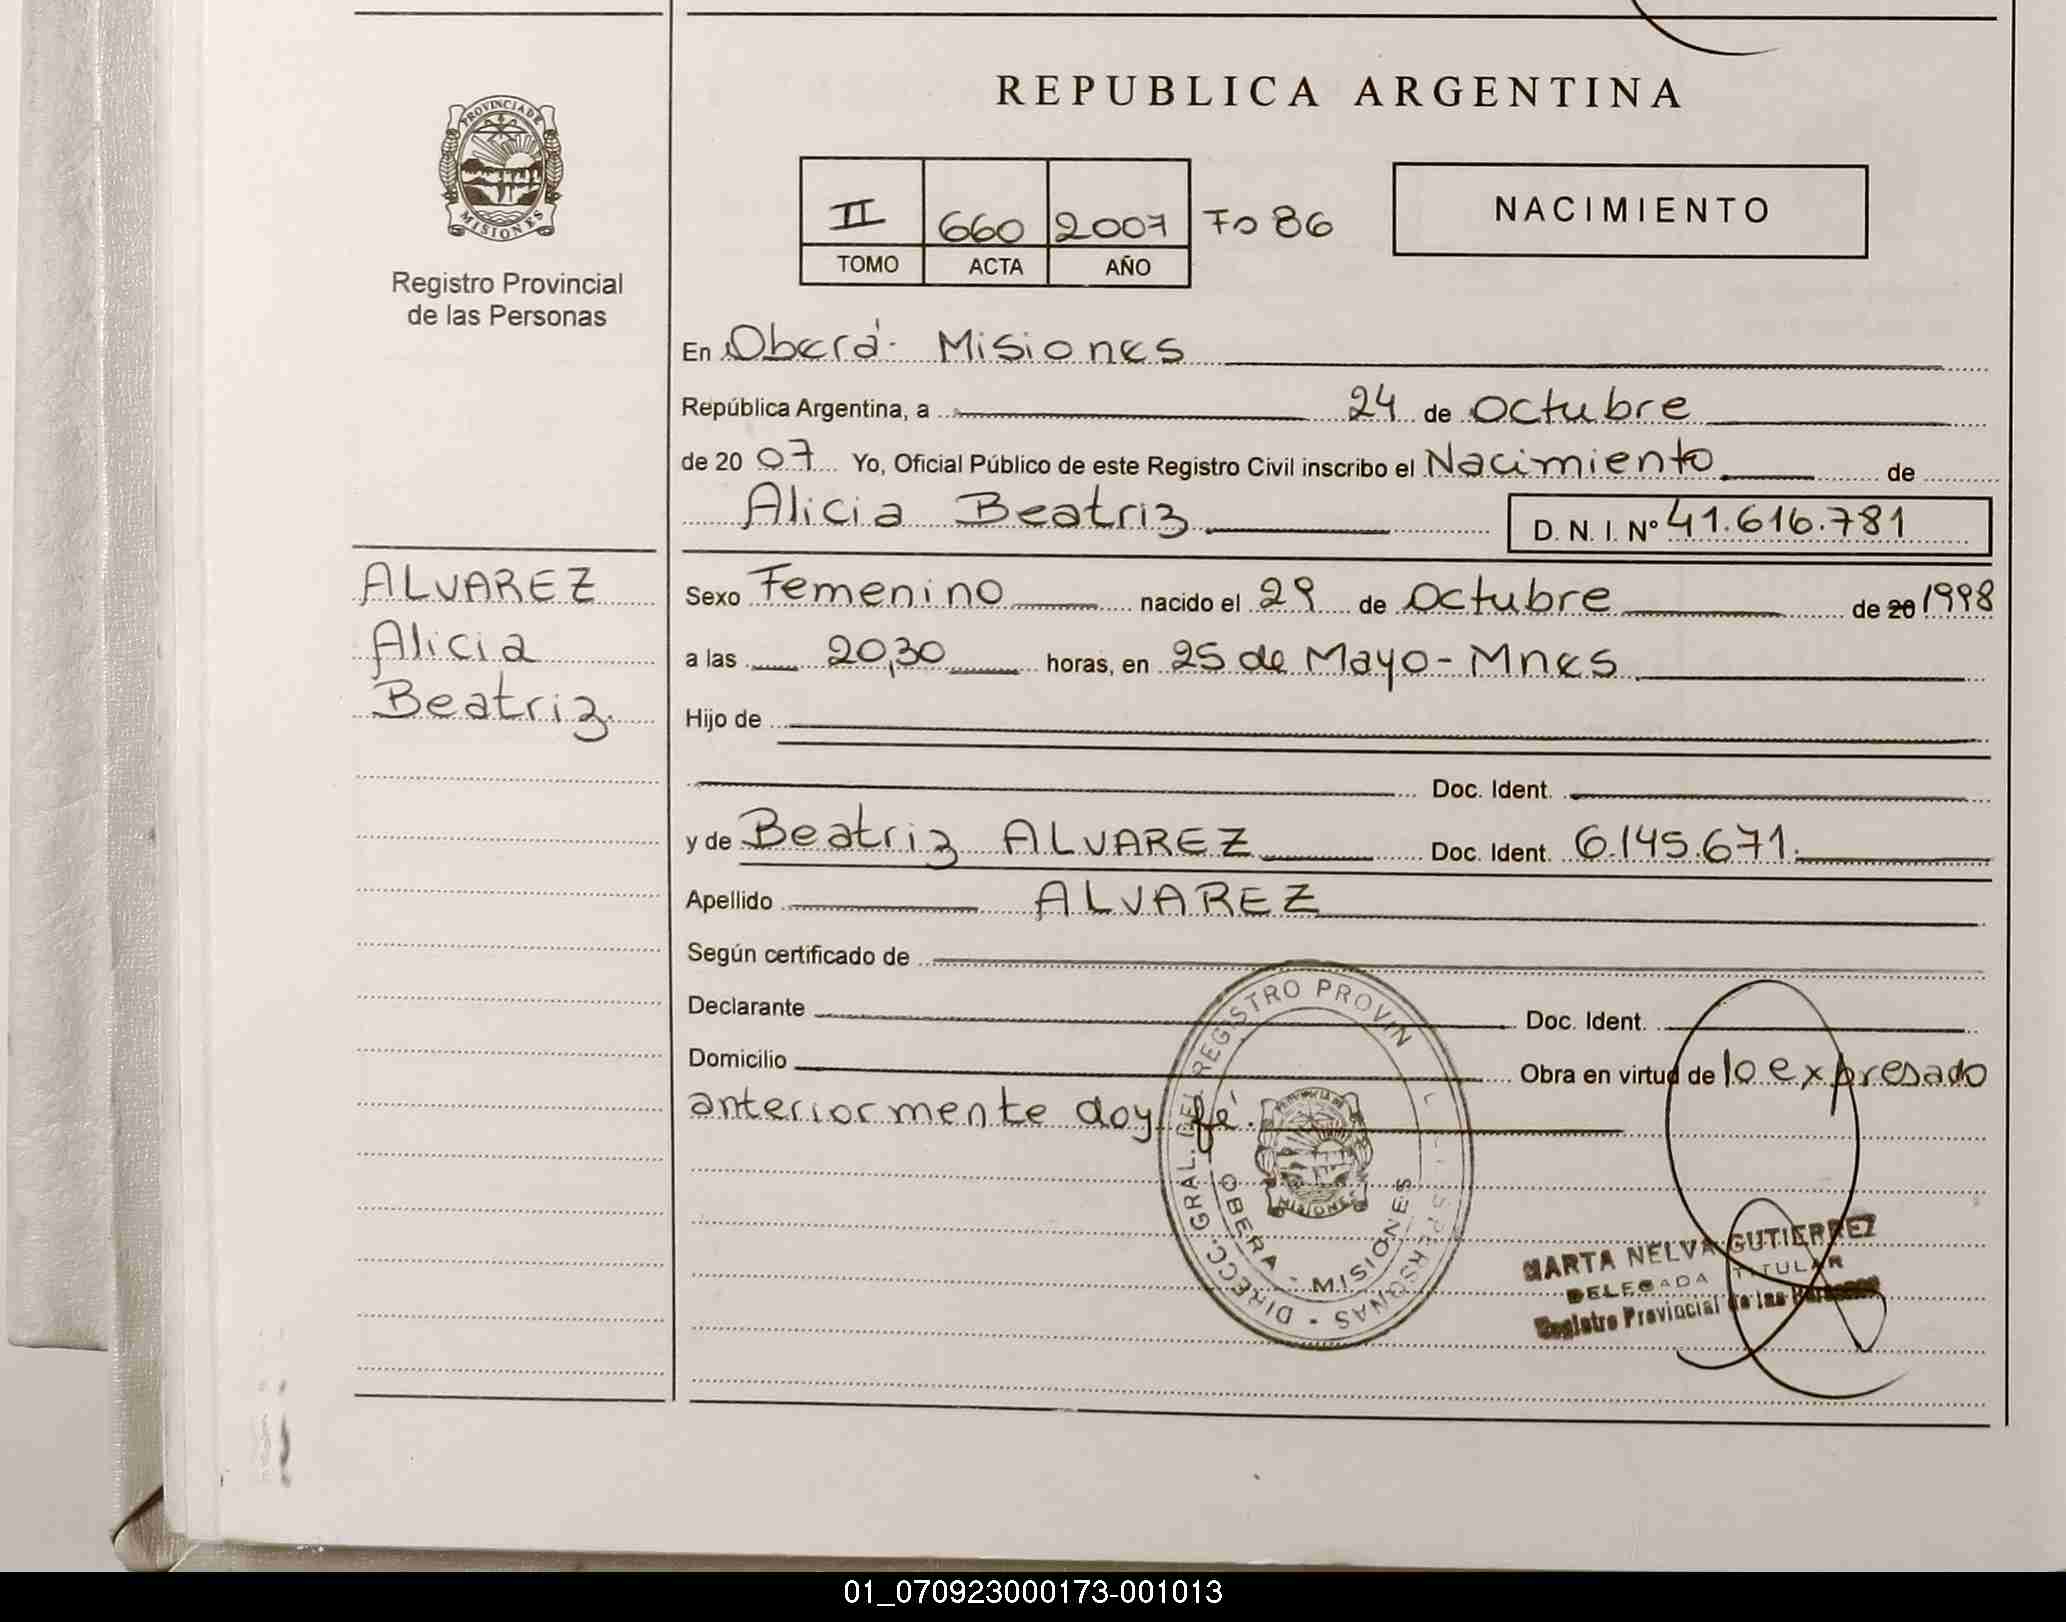 REPUBLICA ARGENTINA
PROVINCIA DE
MISIONES
Registro Provincial
de las Personas
II 660 2007 Fo 86
TOMO ACTA AÑO
NACIMIENTO
En Oberá - Misiones
República Argentina, a 24 de octubre
de 20 07 Yo, Oficial Público de este Registro Civil inscribo el Nacimiento de
Alicia Beatriz D. N. I. Nº 41.616.781
ALVAREZ
Alicia
Beatriz.
Sexo Femenino nacido el 29 de octubre de 20 1998
a las 20,30 horas, en 25 de Mayo - Mnes
Hijo de
Doc. Ident.
y de Beatriz ALVAREZ Doc. Ident. 6.145.671.
Apellido ALVAREZ
Según certificado de
Declarante Doc. Ident.
Domicilio Obra en virtud de lo expresado
anteriormente doy fé.
DIRECC. GRAL. DEL REGISTRO PROVIN L S PERSONAS
OBERA - MISIONES
PROVINCIA DE
MISIONES
MARTA NELVA GUTIERREZ
DELEGADA TITULAR
Registro Provincial de las Personas
01_070923000173-001013